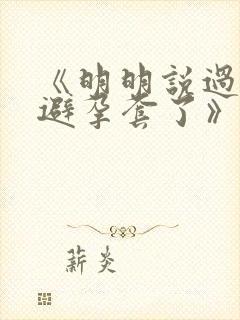 《明明說過
避孕套了》
薪炎